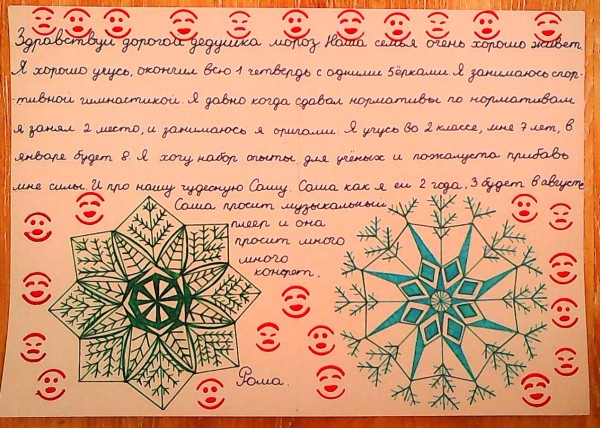 Здравствуй дорогой дедушка мороз Наша семья очень хорошо живет
Я хорошо учусь, окончил всю 1 четвердь с одними 5ёрками. Я занимаюсь спор-
тивной гимнастикой. Я давно когда сдавал нормативы по нормативам
я занял 2 место, и занимаюсь я оригами. Я учусь во 2 классе, мне 7 лет, в
январе будет 8. Я хочу набор опыты для учёных и пожалуста прибавь
мне силы. И про нашу чудесную Сашу. Саша как я ей 2 года, 3 будет в августе
Саша просит музыкальный
плеер и она
просит много
много
конфет.
Рома.